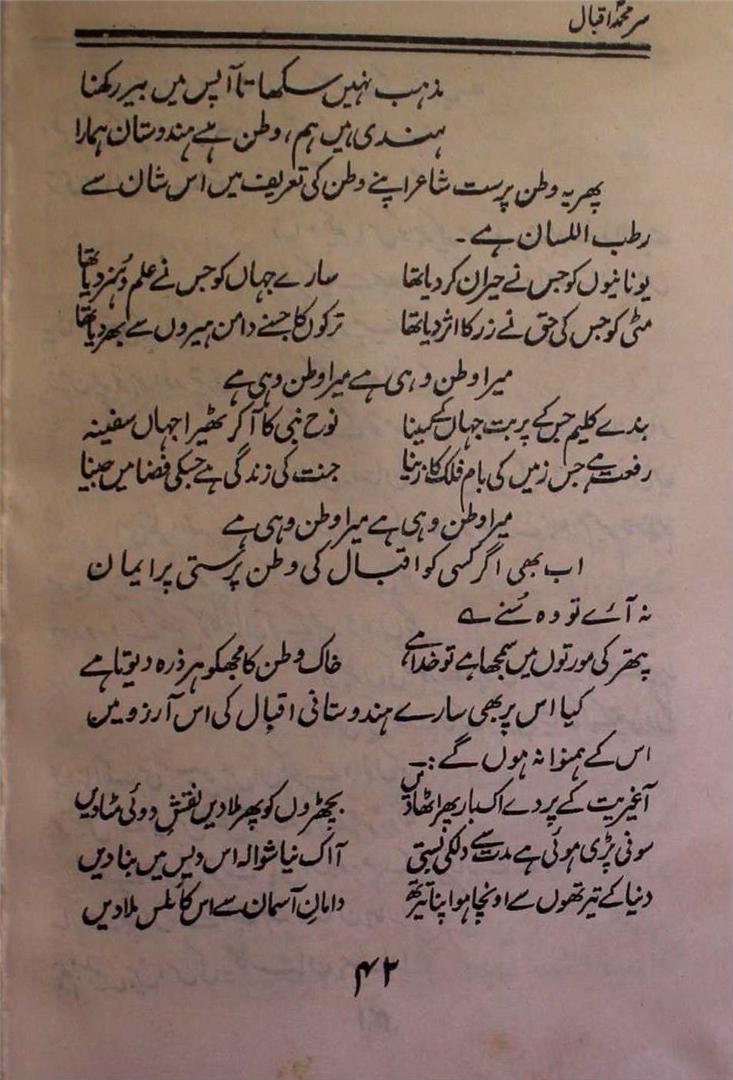 سر محمد اقبال
مذہب نہیں سکھاتا آپس میں بیر رکھنا
ہندی ہیں ہم، وطن ہے ہندوستان ہمارا
پھر یہ وطن پرست شاعر اپنے وطن کی تعریف میں اس شان سے
رطب اللسان ہے۔
یونانیوں کو جس نے حیران کر دیا تھا سارے جہاں کو جس نے علم و ہنر دیا تھا
مٹی کو جس کی حق نے زر کا اثر دیا تھا ترکوں کا جسنے دامن ہیروں سے بھر دیا تھا
میرا وطن وہی ہے میرا وطن وہی ہے
بندے کلیم جس کے پربت جہاں کے سینا نوح نبی کا آ کر ٹھیرا جہاں سفینہ
رفعت ہے جس زمیں کی بام فلک کا زینا جنت کی زندگی ہے جسکی فضا میں جینا
میرا وطن وہی ہے میرا وطن وہی ہے
اب بھی اگر کسی کو اقبال کی وطن پرستی پر ایمان
نہ آئے تو وہ سُنے ے
پتھر کی مورتوں میں سمجھا ہے تو خدا ہے خاک وطن کا مجھکو ہر ذرہ دیوتا ہے
کیا اس پر بھی سارے ہندوستانی اقبال کی اس آرزو میں
اس کے ہمنوا نہ ہوں گے:۔
آ غیریت کے پردے اک بار پھر اٹھا دیں بچھڑوں کو پھر ملا دیں نقشِ دوئی مٹا دیں
سونی پڑی ہوئی ہے مدت سے دلکی بستی آ اک نیا شوالہ اس دیس میں بنا دیں
دنیا کے تیرتھوں سے اونچا ہو اپنا تیرتھ دامانِ آسمان سے اس کا کلس ملا دیں
۴۲